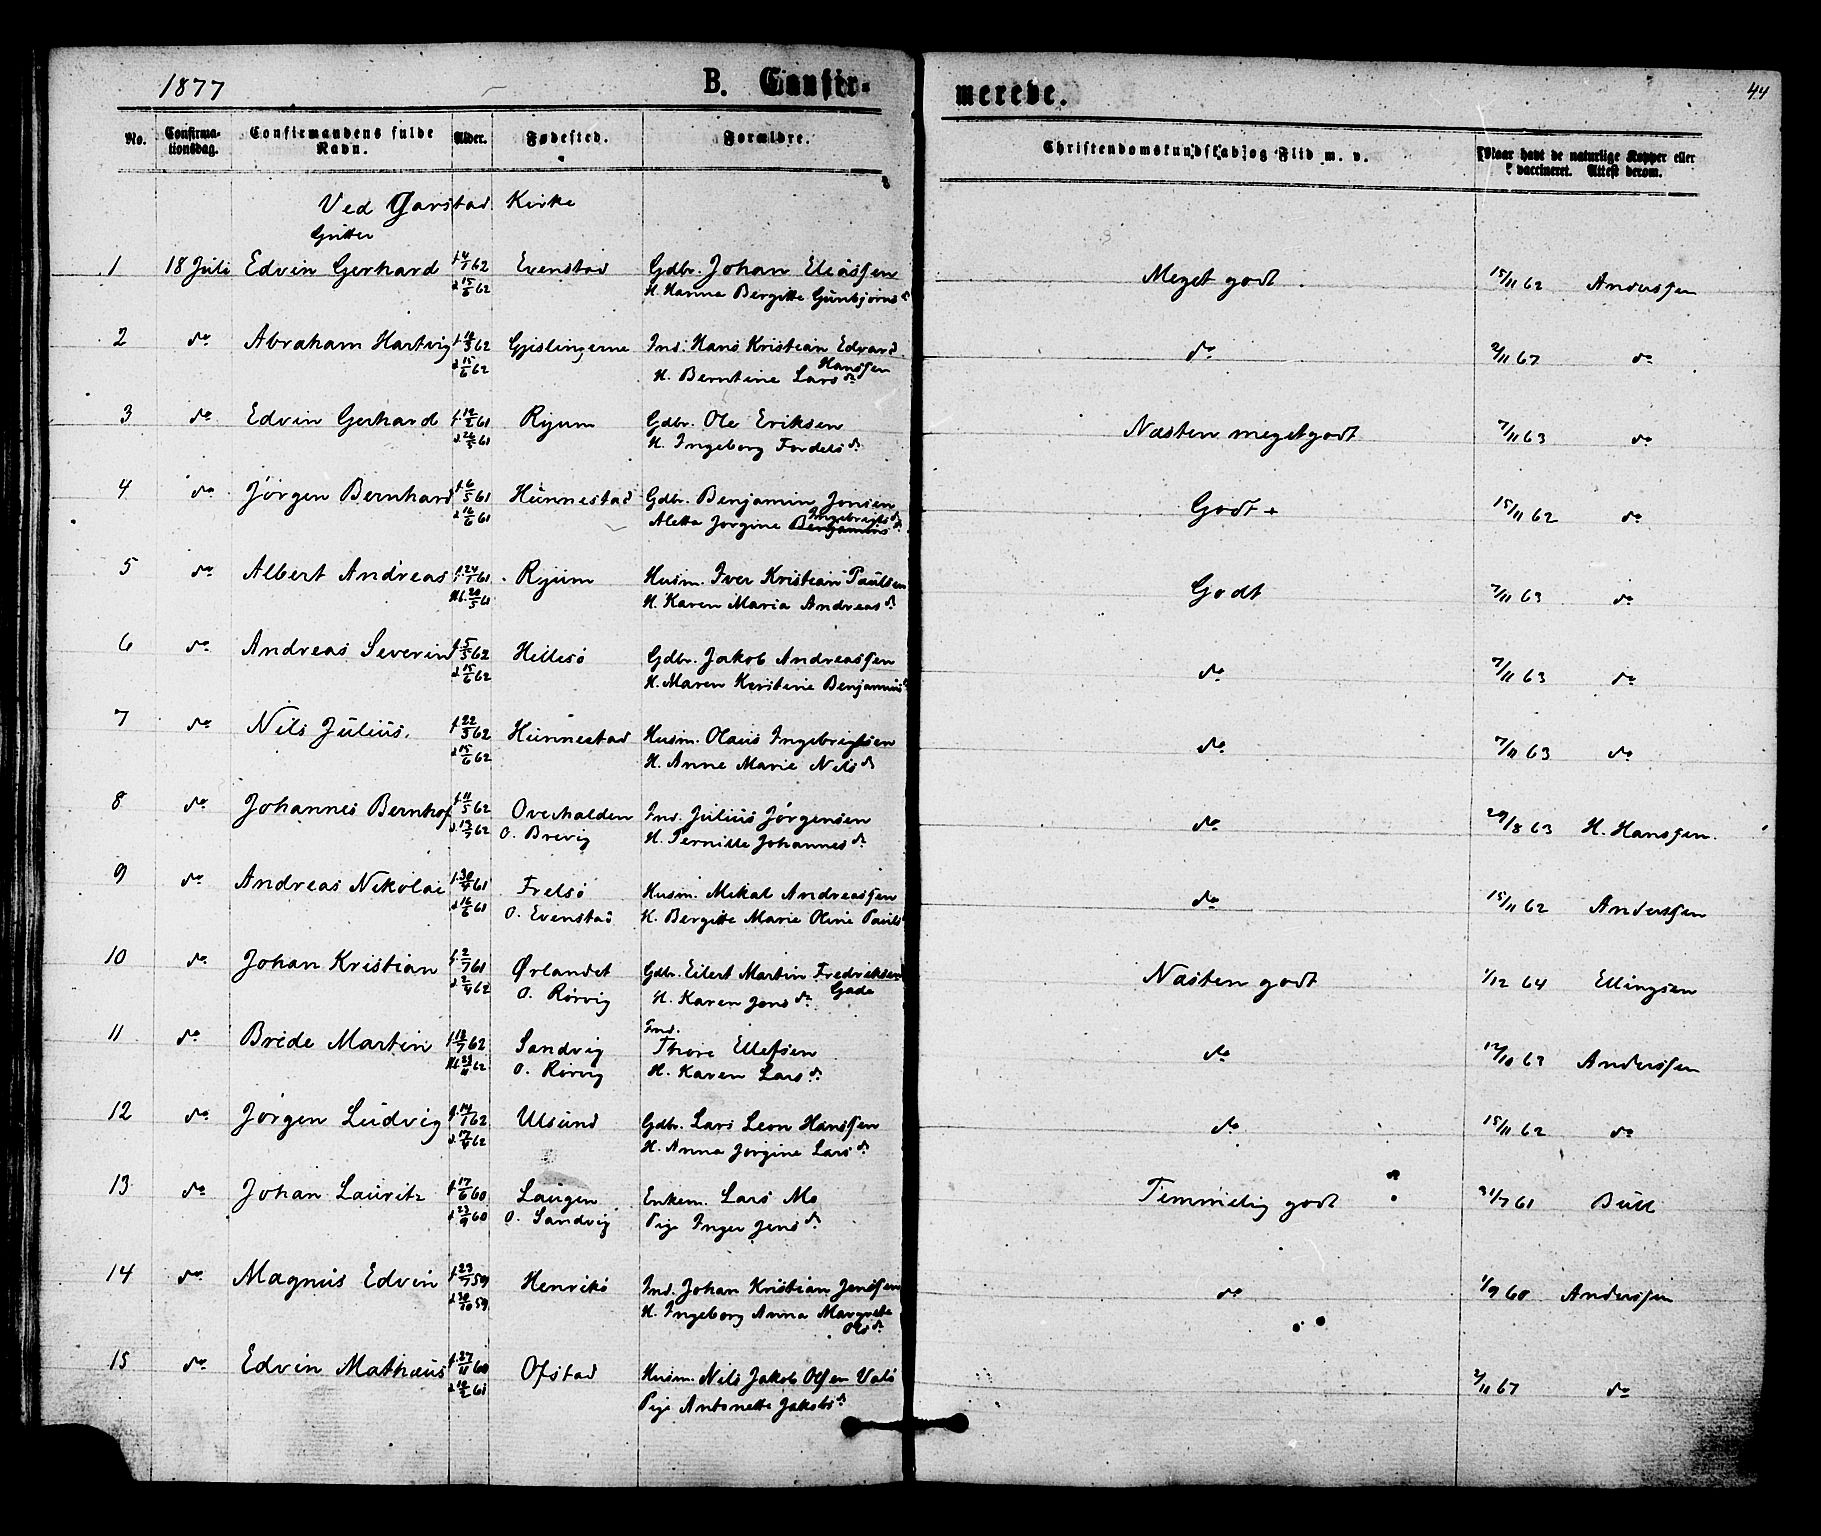 1877 B. Confir- merede. 44
No. Confirma-tionsdag. Confirmandens fulde Navn. Alder. Fødested. Forældre. Christendomskundskab og Flid m. v. Naar havt de naturlige Kopper eller vaccineret. Attest derom.
Ved Garstad Kirke
Gutter
1 18 Juli Edvin Gerhard f. 4/1 62 Evenstad Gdbr. Johan Eliassen Meget godt 15/11 62 Anderssen
d 15/6 62 H. Hanna Bergitte Gunbjørns d.
2 do Abraham Hartvig 62 Gjislingerne Ind. Hans Kristian Edvard Hanssen do 2/11 67 do
d 15/6 62 H. Berntine Lars d.
3 do Edvin Gerhard f. 61 Ryum Gdbr. Ole Eriksen Næsten meget godt 7/11 63 do
d 26/5 61 H. Ingeborg Fordels d.
4 do Jörgen Bernhard f. 6/5 61 Hunnestad Gdbr. Benjamin Jonsen Godt + 15/11 62 do
d 16/6 61 Aletta Jorgine Benjamins Ingebrigts d.
5 do Albert Andreas f. 24/1 61 Ryum Husm. Iver Kristian Paulsen Godt 7/11 63 do
Hd. 20/5 61 H. Karen Maria Andreas d.
6 do Andreas Severin f. 5/3 62 Hillesö Gdbr. Jakob Andreassen do 7/11 63 do
d 15/6 62 H. Maren Kristine Benjamins d.
7 do Nils Julius. f. 22/3 62 Hunnestad Husm. Olaus Ingebrigtsen do 7/11 63 do
d 15/6 62 H. Anne Marie Nils d.
8 do Johannes Bernhof f. 11/5 62 Overhalden Ind. Julius Jørgensen do 29/8 63 H. Hanssen.
d. 13/7 62 O. Brevig H. Pernille Johannes d.
9 do Andreas Nikolai f. 30/4 61 Frelsö Husm. Mikal Andreassen do 15/11 62 Anderssen
d 16/6 61 O. Evenstad H. Bergitte Marie Oline Pauls d.
10 do Johan Kristian f. 2/7 61 Ørlandet Gdbr. Eilert Martin Fredriksen Gade Næsten godt 1/12 64 Ellingsen
d 2/4 62 O. Rørvig H. Karen Jens d.
11 do Brede Martin f. 18/7 62 Sandvig Ind. Thore Ellefsen do 12/10 63 Anderssen
Hd. 23/11 62 O. Rørvig H. Karen Lars d.
12 do Jørgen Ludvig f. 14/1 62 Ulsund Gdbr. Lars Leon Hanssen do 15/11 62 do
d. 17/4 62 H. Anna Jørgine Lars d.
13 do Johan Lauritz f. 17/6 60 Laugen Enkem. Lars Mo Temmelig godt 31/7 61 Bull
d 23/9 60 O. Sandvig Pige Inger Jens d.
14 do Magnus Edvin f. 23/7 59 Henriksö Ind. Johan Kristian Jenssen do 1/9 60 Anderssen
d 30/10 59 H. Ingeborg Anna Margrete Ols d.
15 do Edvin Mathæus f. 27/11 60 Ofstad Husm. Nils Jakob Olsen Valö 2/11 67 do
d 61 Pige Antonette Jakobs d.